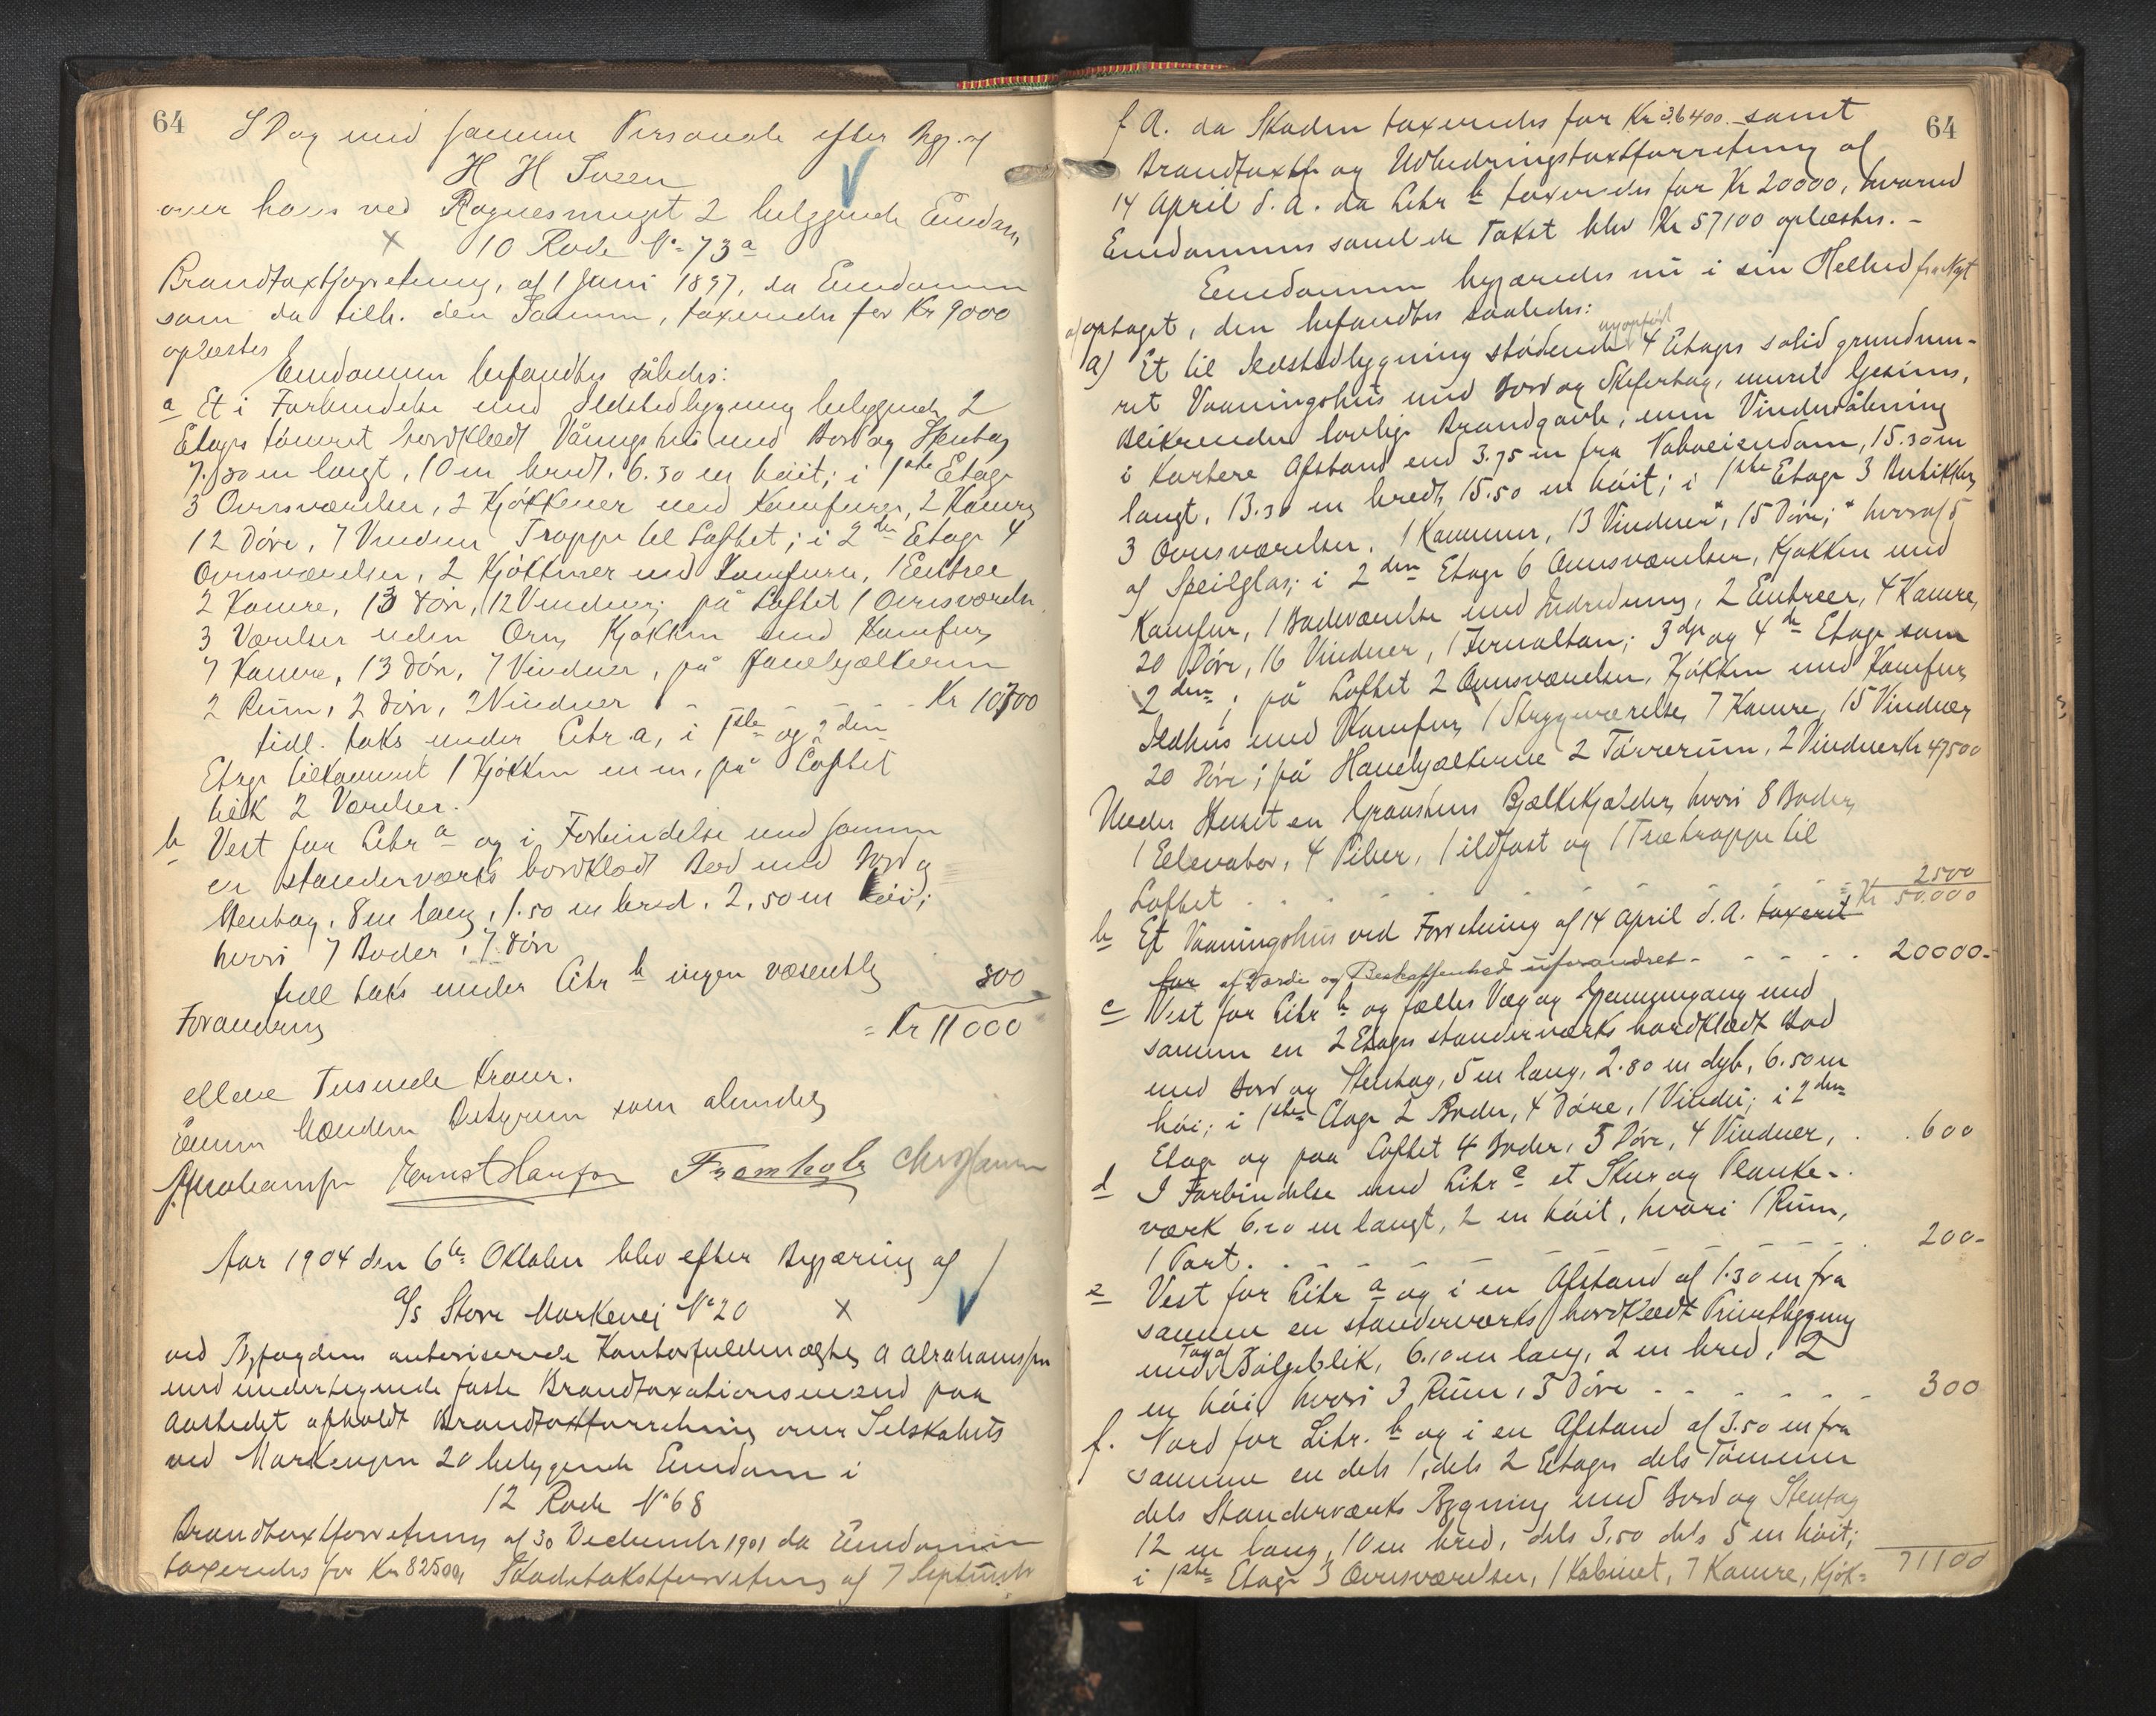 64
S Dag med samme Personale efter Begj. af
H H Sveen
over hans ved Rognesmuget 2 beliggende Eiendom
10 Rode No 73a
Brandtaxtforretning, af 1 Juni 1897, da Eiendommen
som da tilh. den Samme, taxeredes for Kr 9000
oplæstes
Eiendommen befandtes således:
a Et i Forbindelse med Ildstedbygning beliggende 2
Etages tømret bordklædt Våningshus med Bord og Stentag
7.50 m langt, 10 m bredt, 6.30 m høit; i 1ste Etage
3 Ovnsværelser, 2 Kjøkkener med Komfurer, 2 Kamre
12 Døre, 7 Vinduer Trappe til Loftet; i 2den Etage 4
Ovnsværelser, 2 Kjøkkener med Komfurer, 1 Entree
2 Kamre, 13 Døre, 12 Vinduer; på Loftet 1 Ovnsværelse
3 Værelser uden Ovn, Kjøkken med Komfur,
7 Kamre, 13 Døre, 7 Vinduer, på Hanebjælkerne
2 Rum, 2 Døre, 2 Vinduer - - - - - Kr 10700
tidl. taks under Litr a, i 1ste og 2den
Etage tilkommet 1 Kjøkken m m, på Loftet
tilk 2 Værelser.
b Vest for Litr a og i Forbindelse med samme
en standerværks bordklædt Bod med Bord og
Stentag, 8 m lang, 1.50 m bred, 2,50 m høi;
hvori 7 Boder, 7 Døre
tidl taks under Litr b ingen væsentlig 300
Forandring = Kr 11000
elleve Tusinde Kroner.
Mændene som almindelig
Abrahamsen Ernst Hansen Fromholz Chr Hansen
Aar 1904 den 6te Oktober blev efter Begjæring af
A/s Store Markevei No 20 X
ved Byfogdens autoriserede Kontorfuldmægtig A Abrahamsen
med undertegnede faste Brandtaxationsmænd paa
Aastedet afholdt Brandtaxtforretning over Selskabets
ved Markeveien 20 beliggende Eiendom i
12 Rode No 68
Brandtaxtforretning af 30 December 1901 da Eiendommen
taxeredes for Kr 82500, Skadetakstforretning af 7 Septembr
64
f A. da Skaden taxeredes for Kr 36400.- samt
Brandtaxtf og Udbedringstaxtforretning af
14 April d. A. da Litr b taxeredes for Kr 20000, hvorved
Eiendommens samlede Takst blev Kr 57100 oplæstes. -
Eiendommen begjæredes nu i sin Helhed fra Nyt
optaget, den befandtes saaledes:
a) Et til Ildstedbygning stødende nyopført 4 Etages solid grundmu-
ret Vaaningshus med Bord og Skifertag, muret Gesims,
Blikrender lovlige Brandgavle, uden Vinduesåbning
i kortere Afstand end 3.75 m fra Naboeiendom, 15.30 m
langt, 13.30 m bredt, 15.50 m høit; i 1ste Etage 3 Butikker,
3 Ovnsværelser, 1 Kammer, 13 Vinduer*, 15 Døre; * hvoraf 5
af Speilglas; i 2den Etage 6 Ovnsværelser, Kjøkken med
Komfur, 1 Badeværelse med Indredning, 2 Entreer, 4 Kamre,
20 Døre, 16 Vinduer, 1 Jernaltan; 3die og 4de Etage som
2den; på Loftet 2 Ovnsværelser, Kjøkken med Komfur,
Ildhus med Komfur, 1 Strygeværelse, 7 Kamre, 15 Vinduer,
20 Døre; på Hanebjælkerne 2 Tørrerum, 2 Vinduer Kr 47500
Under Huset en Graastens Bjælkekjælder, hvori 8 Boder,
1 Elevator, 4 Piller, 1 ildfast og 1 Trætrappe til
Loftet - - - - - 2500
= Kr 50.000
b Et Vaaningshus ved Forretning af 14 April d. A. taxeret
for af Værdi og Beskaffenhed uforandret - - - - 20000-
c Vest for Litr b og fælles Væg og Gjennemgang med
samme en 2 Etages standerværks bordklædt Bod
med Bord og Stentag, 5 m lang, 2.80 m dyb, 6.50 m
høi; i 1ste Etage 2 Boder, 4 Døre, 1 Vindu; i 2den
Etage og paa Loftet 4 Boder, 5 Døre, 4 Vinduer, . . 600
d I Forbindelse med Litr c et Skur og Planke-
værk 6.20 m langt, 2 m høit, hvori 1 Rum,
1 Port. - - - - - 200-
e Vest for Litr a og i en Afstand af 1.30 m fra
samme en standerværks bordklædt Privetbygning
med Tag af Bølgeblik, 6.10 m lang, 2 m bred, 2
m høi, hvori 3 Rum, 3 Døre - - - - - 300
f. Nord for Litr. b og i en Afstand af 3.50 m fra
samme en dels 1, dels 2 Etages dels Tømmer
dels Standerværks Bygning med Bord og Stentag
12 m lang, 10 m bred, dels 3,50 dels 5 m høit;
i 1ste Etage 3 Ovnsværelser, 1 Kabinet, 7 Kamre, Kjøk= 71100